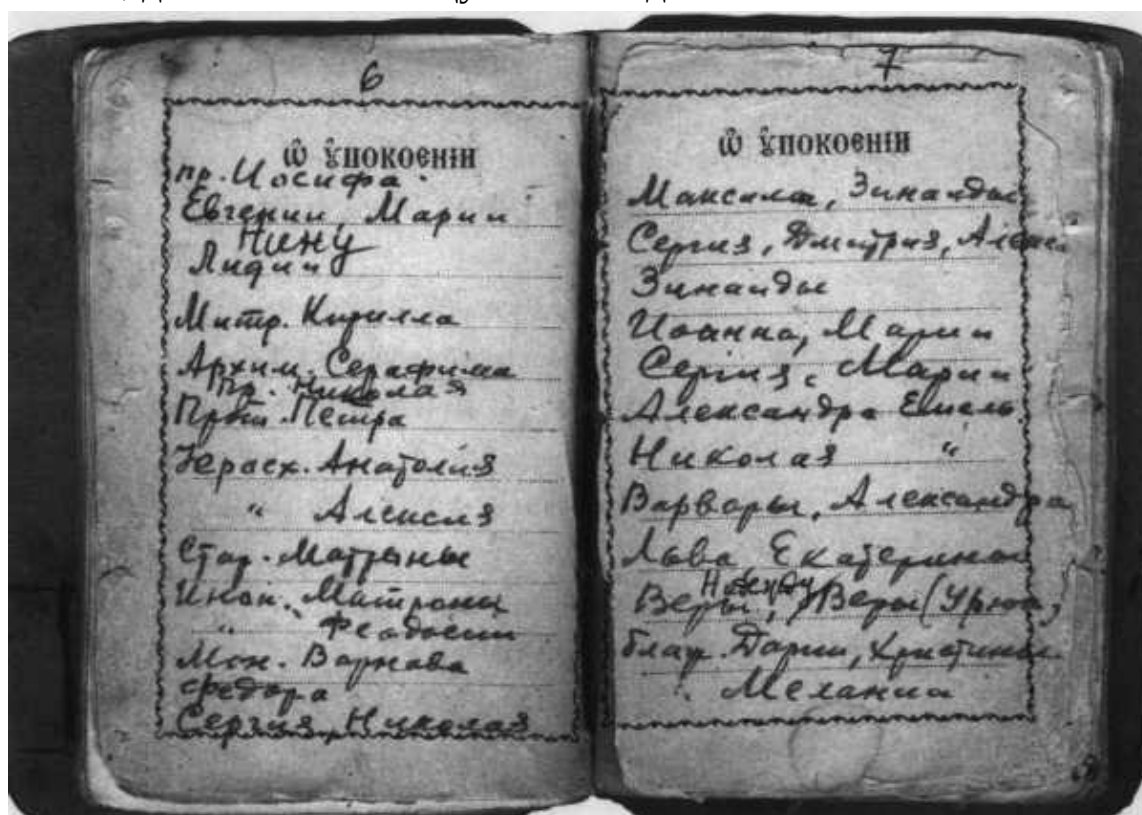 6
Ѿ ᲂупокоенїи
пр. Иосифа
Евгении Марии
Нину
Лидии
Митр. Кирилла
Архим. Серафима
Пр. Николая
Прот. Петра
Иерасх. Анатолия
" Алексея
Стар. Матроны
Инок. Матроны
" Феодосии
Мон. Варнава
Федора
Сергия, Николая
7
Ѿ ᲂупокоенїи
Максима, Зинаиды
Сергия, Дмитрия, Алексе
Зинаиды
Иоанна, Марии
Сергия, Марии
Александра Емель.
Николая "
Варвары, Александра
Льва Екатерины
Надежду
Веры, Веры
блаж. Дарии, Христины
Мелании